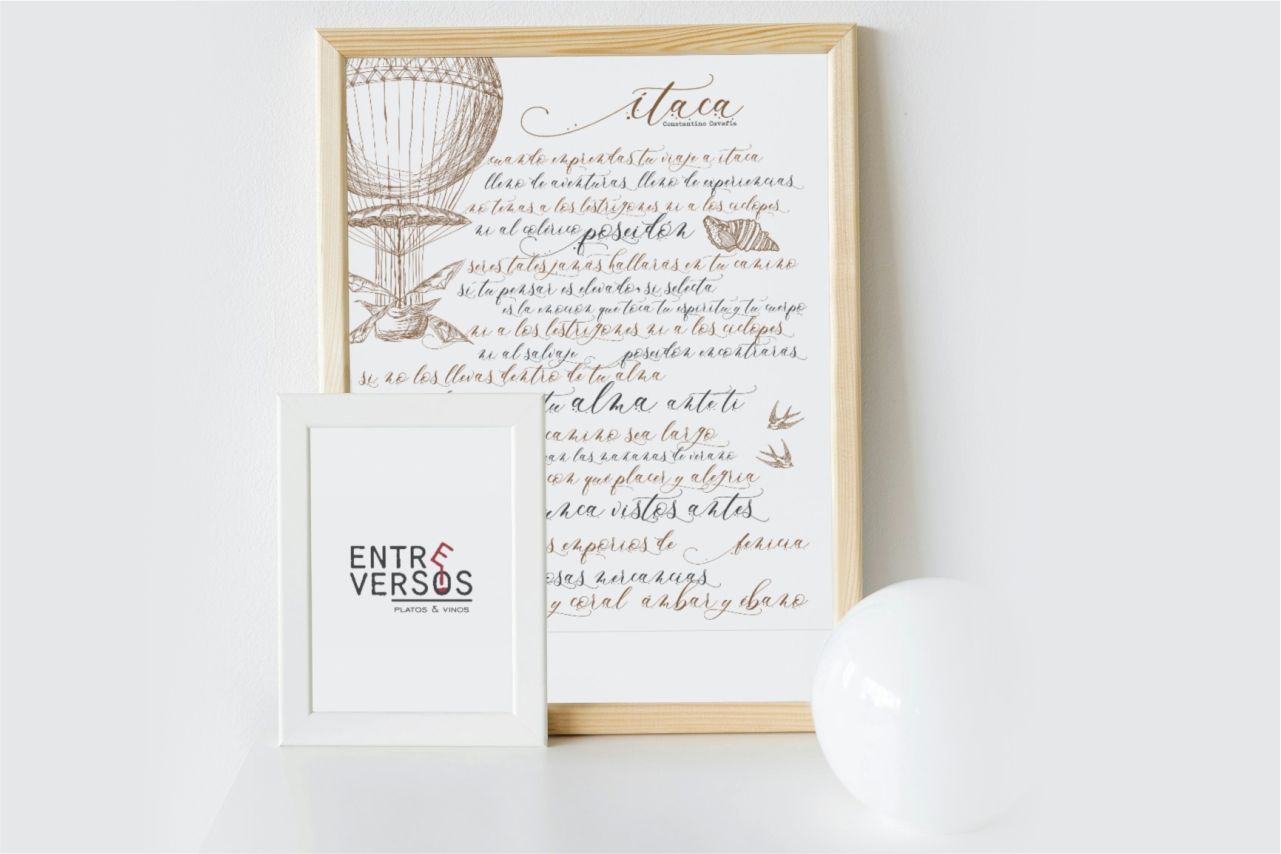 ítaca
Constantino Cavafis
cuando emprendas tu viaje a ítaca
lleno de aventuras lleno de experiencias
no temas a los lestrigones ni a los cíclopes
ni al colérico poseidón
seres tales jamás hallarás en tu camino
si tu pensar es elevado, si selecta
es la emoción que toca tu espíritu y tu cuerpo
ni a los lestrigones ni a los cíclopes
ni al salvaje poseidón encontrarás
si no los llevas dentro de tu alma
tu alma ante ti
camino sea largo
las mañanas de verano
con qué placer y alegría
vistos antes
emporios de fenicia
mercancías
y coral ámbar y ébano
ENTRE
VERSOS
PLATOS & VINOS